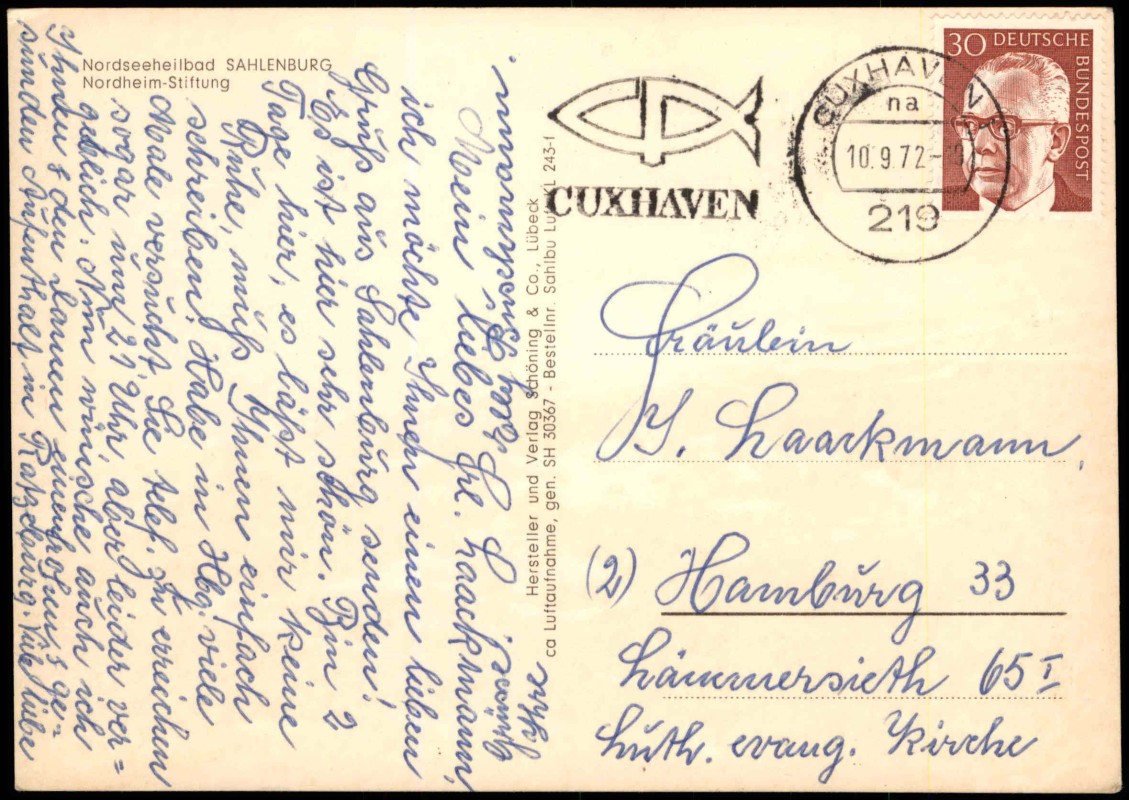 Nordseeheilbad SAHLENBURG
Nordheim-Stiftung
Mein liebes Frl. Laackmann,
ich möchte Ihnen einen lieben
Gruß aus Sahlenburg senden!
Es ist hier sehr schön. Bin 2
Tage hier, es läßt mir keine
Ruhe, muß Ihnen einfach
schreiben. Habe in Hbg. viele
Male versucht Sie telef. zu erreichen
sogar um 21 Uhr, aber leider ver=
geblich. Nun wünsche auch ich
Ihnen & den Damen einen frohen & ge-
sunden Aufenthalt in Ratzeburg. Viele liebe
Ihre
Hersteller und Verlag Schöning & Co., Lübeck
ca Luftaufnahme, gen. SH 30367 - Bestellnr. Sahlbu Lu KL 243-1
CUXHAVEN
CUXHAVEN
na
10.9.72-
219
30 DEUTSCHE
BUNDESPOST
Fräulein
Laackmann,
(2) Hamburg 33
Lämmersieth 65 I
Luth. evang. Kirche